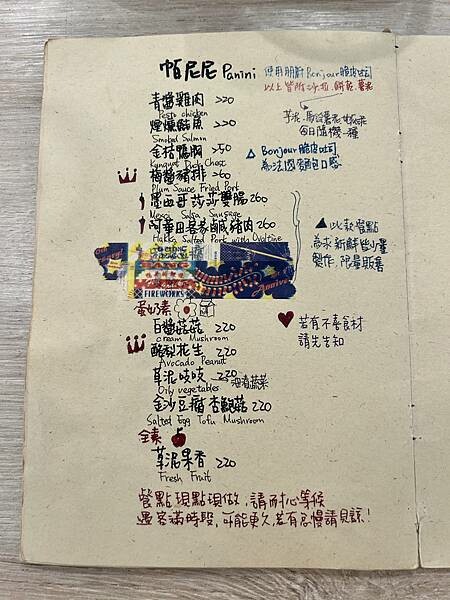 帕尼尼 Panini
使用朋廚Bonjour脆皮吐司
以上皆附沙拉、餅乾、薯泥
青醬雞肉 220
Pesto chicken
煙燻鮭魚 220
Smoked Salmon
金桔鴨胸 250
Kumquat Duck Chest
梅醬豬排 260
Plum Sauce Fried Pork
墨西哥莎莎雙腸 260
Mexico Salsa Sausage
阿華田客家鹹豬肉 260
Hakka Salted Pork with Ovaltine
今日隨機一種
▲ Bonjour脆皮吐司
為法國麵包口感
▲ 以上餐點
為求新鮮皆少量
製作,限量販售
FIREWORKS
蛋奶素
白醬菇菇 220
Cream Mushroom
酪梨花生 220
Avocado Peanut
草泥吱吱 220
Oily vegetables
油漬蔬菜
金沙豆腐杏鮑菇 220
Salted Egg Tofu Mushroom
若有不喜食材
請先告知
全素
草泥果香 220
Fresh Fruit
餐點現點現做,請耐心等候
遇客滿時段,可能更久,若有怠慢請見諒!